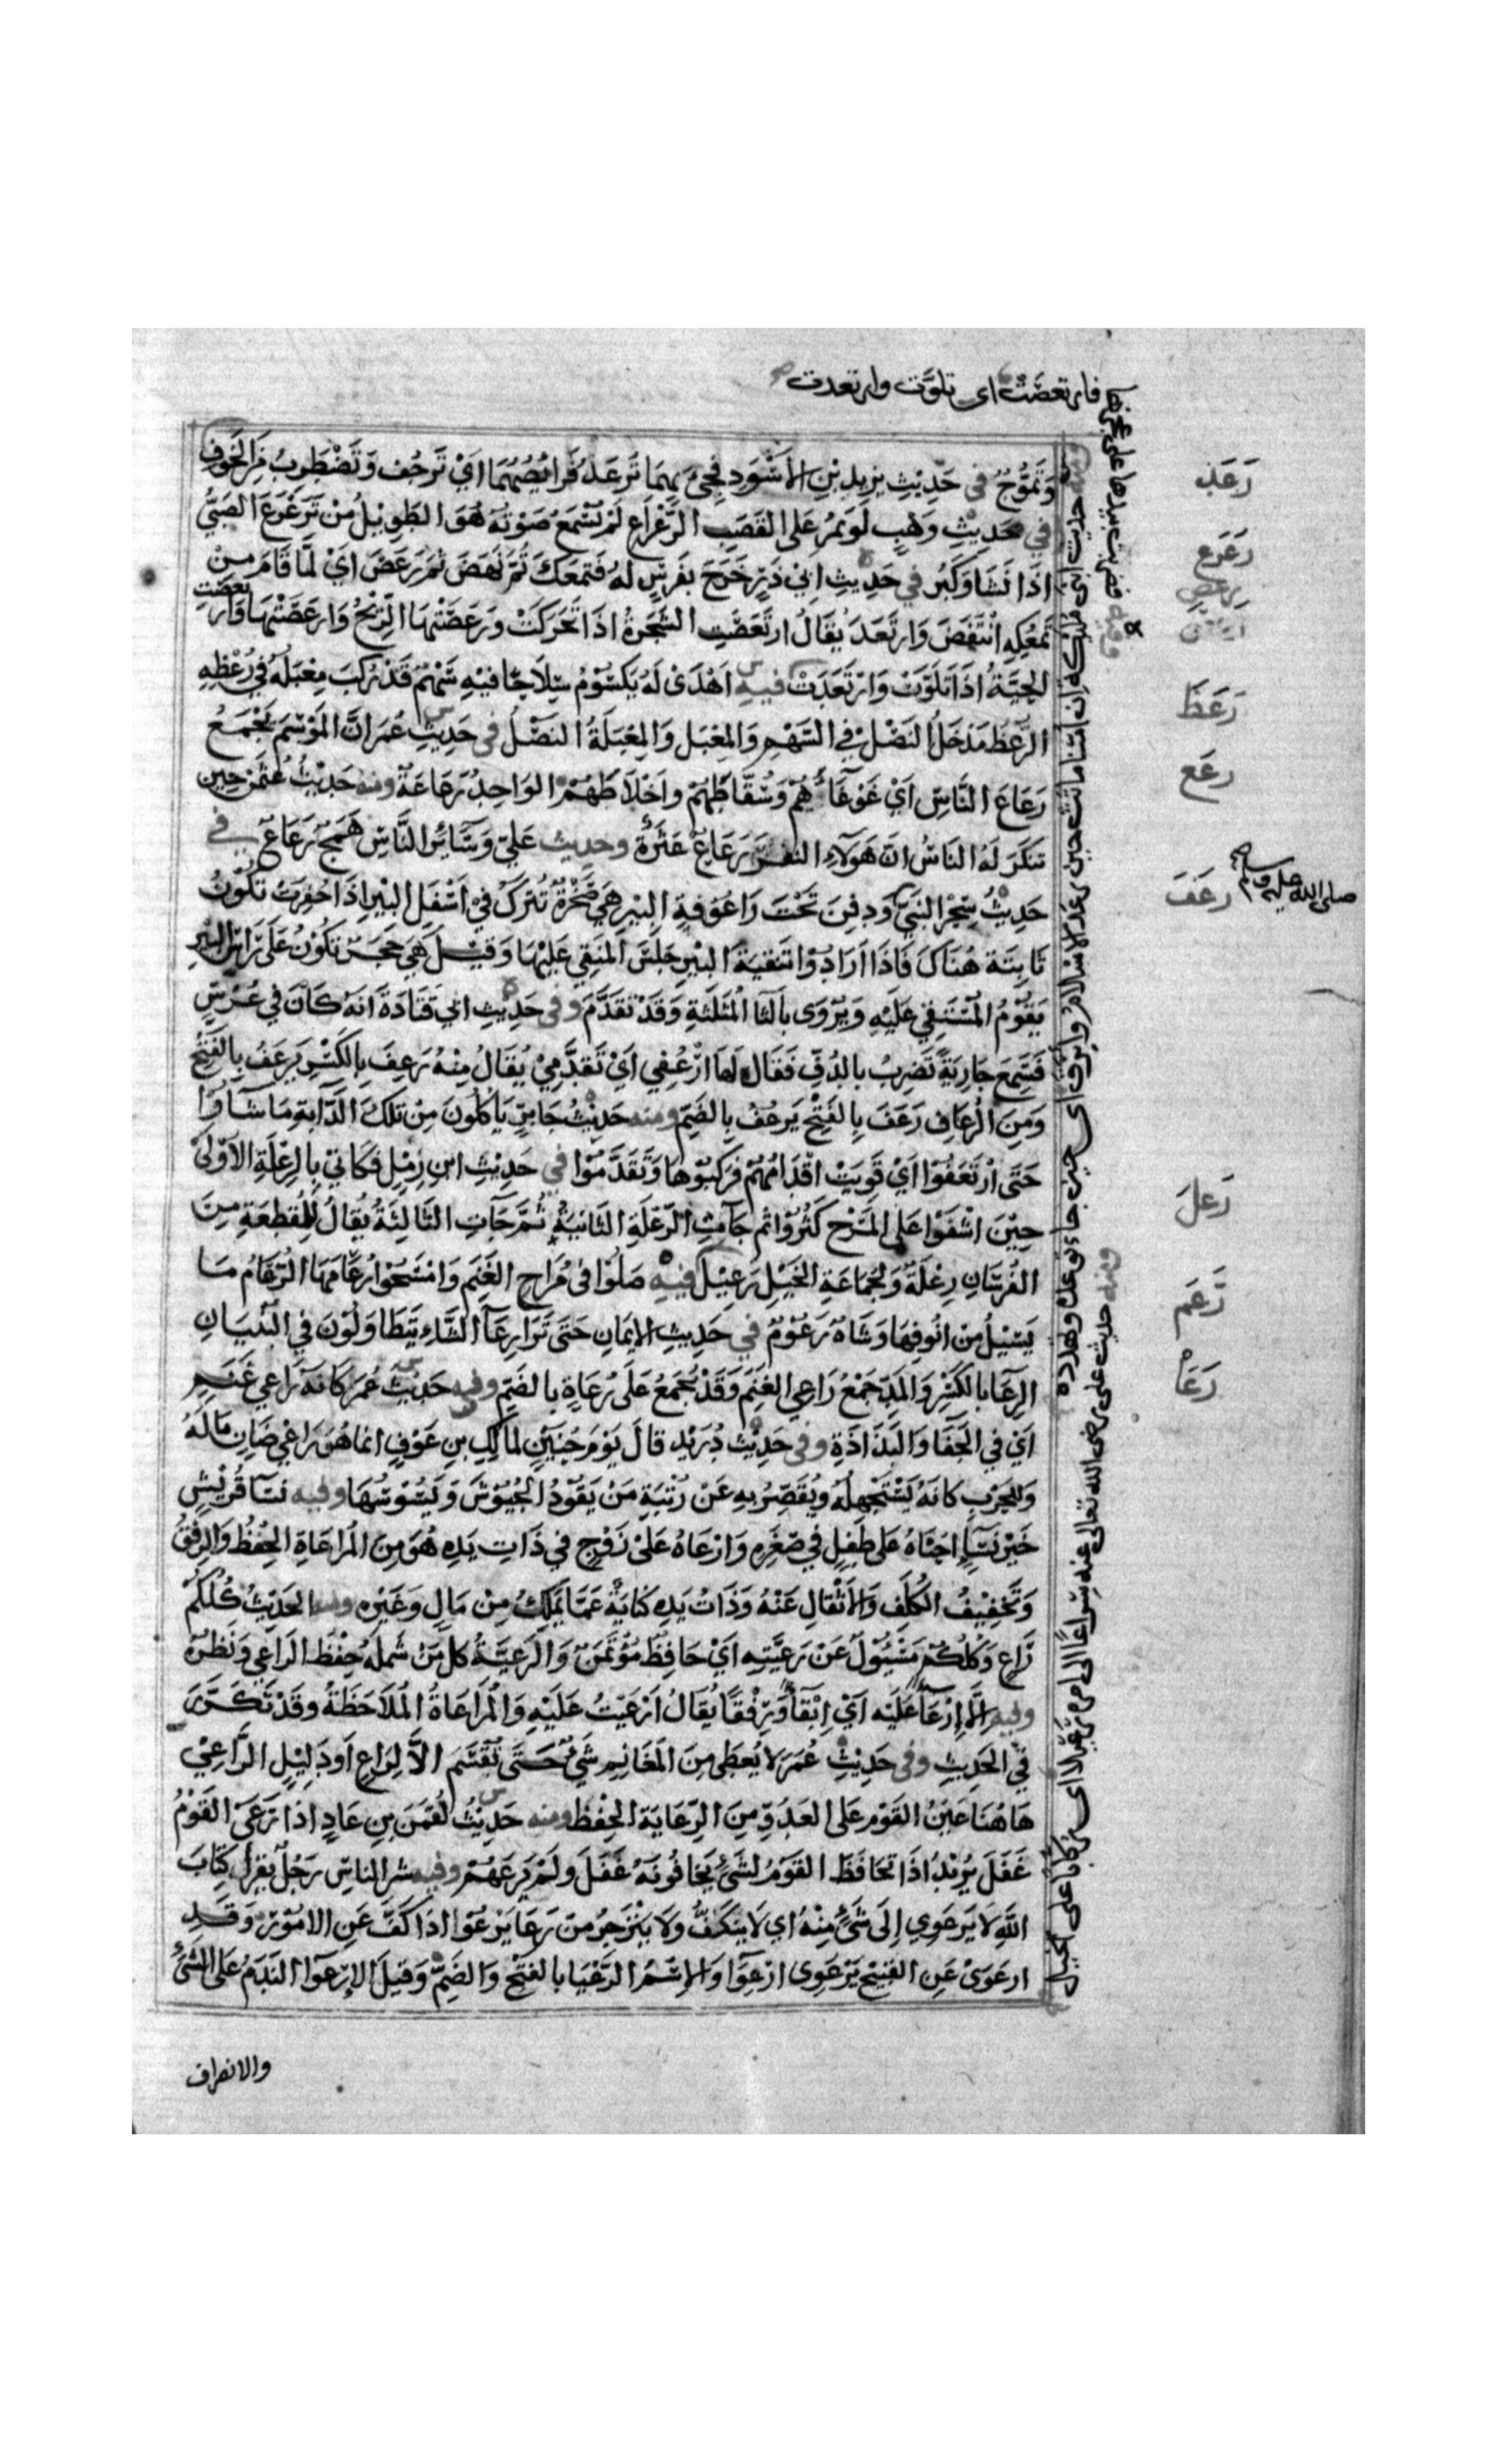 فارتعصت اى تلوّت وارتعدت
وَتَمَوُّجٌ في حَدِيْثِ يزيد بْنِ الأَسْوَدِ فجِيءَ بهِمَا تَرعَدُ فَرائِصُهُمَا اايْ تَرجُف وَتَضْطَرِبُ مِنَ الخَوفِ
في حَدِيْثِ وَهبٍ لَو يَمُرُّ عَلى القَصَبِ الرَّعْرَاعِ لَمْ يُسْمَعْ صَوْتُه هُوَ الطَوِيْلُ مِنْ تَرَعْرَعَ الصَبِيُّ
اذَا نَشَا وَكَبُر في حَدِيْثِ ابيْ ذَرٍّ خَرَجَ بفَرَسٍ لهُ فَتمعَكَ ثُمَّ نَهَضَ ثمَّ رَعَصَ ايْ لَمَّا قَامَ مِنْ
تَمعُكِهِ انْتَفَضَ وَارتَعَدَ يُقَالُ ارتَعَصَتِ الشَجَرَةُ اذَا تَحَرَكَتْ وَرَعَصَتْهَا الرِّيْحُ وَارعَصَتْهَا وَارتعصَتِ
الحَيَّةُ اذَا تَلَوَّتْ وَارْتَعَدَتْ فيه اَهْدَىْ لَهُ يَكسُوْمُ سِلَاحًا فيْهِ سَهْمٌ قَدْ رُكِبَ مِعْبَلُهُ في رُعْظِهِ
الرُعظُ مَدْخَلُ النَصْلِ في السَهْمِ وَالمِعْبَل وَالمِعْبَلَةُ النصْلُ في حَدِيْثِ عُمَر انَّ المَوْسِمَ يَجْمَعُ
رَعَاعَ النَّاسِ ايْ غَوْغَاءَهُمْ وَسُقَّاطَهُمْ واَخْلَاطَهُمْ الوَاحِدُ رَعَاعَةٌ ومنه حَدِيْثُ عُثْمٰنَ حِيْن
تَنَكَّرَ لَهُ النَاسُ انَّ هَؤلَاءِ النفَرَ رَعَاعٌ غَثَرَةٌ وحديث عَليّ وَسَآئِرُ النَّاسِ هَمَجٌ رَعَاعٌ في
حَدِيْثُ سِحْرِ النَبِيّ وَدفِنَ تَحْتَ رَاعُوفةِ البِيْرِ هِيَ صَخْرَةٌ تُتركُ فيْ اَسْفَلِ البْيرِ اذَا حُفِرَتْ تَكُوْنُ
ثَابِتَة هُنَاكَ فَاذَا ارَادُوْا تَنقيَة البْيرِ جَلَسَ المنَقِي عَلَيْهَا وَقيْلَ هِي حَجَرٌ تكُوْنُ عَلىَ رَاسِ البيرِ
يَقُوْمُ المُسْتَقِي عَلَيْهِ وَيرْوَى بالثَا المُثَلثَةِ وَقَدْ تقَدَّمَ وفى حَدِيْثِ ابيْ قتَادَة انَهُ كَانَ في عُرْسٍ
فَسَمِعَ جَارِيَةً تَضرِبُ بالدُفِّ فَقَالَ لَهَا ارْعُفِي ايْ تَقَدَّمِيْ يُقَالُ مِنْهُ رَعِفَ بِالكَسْرِ يَرعَفُ بالفَتْحِ
وَمِنَ الرُعَافِ رَعَفَ بِالفَتْحِ يَرعُفُ بِالضَمِّ ومنه حَدِيْثُ جَابِرٍ يَاكُلُونَ مِنْ تلكَ الدَّابَةِ مَا شَآؤُا
حَتَى ارْتَعَفُوْا ايْ قَوِيَتْ اقْدَامُهُمْ فَرَكِبُوْهَا وَتَقَدَّمُوْا في حَدِيْثِ ابْنِ زِمْلٍ فَكَانيْ بِالرِعْلَةِ الاَوْلىٰ
حِيْنَ اشْفَوْا عَلى المَرْجِ كَثُرُوْا ثم جَآءتِ الرِّعْلَةِ الثَانيَةُ ثُمَّ جَآءتِ الثَالِثَةُ يُقَالُ لِلْقِطعَةِ مِنَ
الفُرْسَانِ رِعْلَةٌ وَلجَمَاعَةِ الخَيْلِ رَعِيْلٌ فيهِ صَلُوْا في مُرَاحِ الغَنَمِ وَامْسَحُوْا رُعَامَهَا الرُعَامُ مَا
يَسِيْلُ مِنْ انُوفِهَا وَشَاةٌ رَعُوْمٌ في حَدِيثِ الايمَانِ حَتَى تَرَا رِعَآ الشَّاءِ يَتطَاوَلُوْنَ في البُنيَانِ
الرِعَآ بِالكَسْرِ وَالمَدِّ جَمْعُ رَاعِي الغَنَمِ وَقَدْ يُجْمَعُ عَلىٰ رُعَاةٍ بالضَمِّ وفيه حَدِيْثُ عُمَر كَانَهُ رَاعِي غَنَمٍ
ايْ في الجَفَا وَالبَذَاذَةِ وفى حَدِيْث دُرَيْدٍ قالَ يَوْمَ حُنَيْنٍ لمالِكِ بنِ عَوْفٍ انما هُوَ رَاعِيْ ضَانٍ مَالَهُ
وَلِلْحَرْبِ كَانَهُ يَسْتَجْهِلُهُ وَيُقَصِّرُ بهِ عَنْ رُتْبَةِ مَنْ يَقُوْدُ الجُيُوْشَ وَيَسُوْسُهَا وفيه نسَآ قُرَيْشٍ
خَيْرُ نِسَآءٍ احْنَاهُ عَلىٰ طِفلٍ في صِغَرِهِ وَارْعَاهُ عَلىٰ زَوْجٍ في ذَاتِ يَدِهِ هُوَ مِنَ المُرَاعَاةِ الحِفْظُ وَالرِفقُ
وَتَخْفِيْفُ الكُلَفِ وَالاَثْقَالِ عَنْهُ وَذَاتُ يَدِهِ كنَايَةٌ عَمَّا يَمْلِكُ مِنْ مَالٍ وَغَيْرِهِ ومنه الحَدِيْثُ كُلُكُمْ
رَاعٍ وَكُلكُمْ مَسْئُوْلٌ عَنْ رَعِيَّتهِ ايْ حَافِظٌ مُؤْتَمَنٌ وَالرَعِيَّةُ كلُّ مَنْ شَملَهُ حِفْظُ الرَاعِي وَنَظرُهُ
وفيه الَّا اِرْعَآءً عَلَيْهِ ايْ اِبْقَآءً وَرِفْقًا يُقَالُ ارْعَيْتُ عَلَيْهِ وَالمُرَاعَاةُ المُلَاحَظَةُ وَقَدْ تَكَرَّرَ
في الحَدِيثِ وفى حَدِيْثِ عُمَرَ لَا يُعطَى مِنَ المَغَانمِ شَيْءٌ حَتَّى تُقْسَمَ الاَّ لِرَاعٍ اَو دَلِيْلٍ الرَّاعِيْ
هَاهُنَا عَيْنُ القَوْمِ عَلى العَدُوِّ مِنَ الرِّعَايَة الحِفْظِ ومنه حَدِيْثُ لُقْمٰنَ بنِ عَادٍ اذَا رَعَىٰ القَوْمُ
غَفَلَ يُرِيْدُ اذَا تحَافَظَ القَوْمُ لشَيْءٍ يَخَافُونَهُ غَفَلَ ولَمْ يَرعَهُمْ وفيه شر الناسِ رَجُلٌ يقرأ كِتَابَ
اللّٰهِ لَا يَرعَوِي اِلَى شَيْءٍ مِنْهُ اي لَا ينكَفُّ وَلَا ينْزَجِرُ مِن رَعَا يَرْعُوْا اذَا كَفَّ عَنِ الامُوْرِ وَقَدِ
ارعَوَىْ عَنِ القَبِيْح يَرْعَوِى ارْعِوَآءً وَالاسْمُ الرَّعْيَا بالفَتْحِ وَالضَمِّ وَقيْلَ الارْعوَآءُ النَدَمُ عَلى الشَيْءِ
والانصراف
رَعَدَ
رَعْرَع
رعص
رَعَظَ
رعَع
رعَفَ
صلى الله عليه وسلم
رَعلَ
رَعَمَ
رَعَا
حديث على رضى الله تعالى عنه